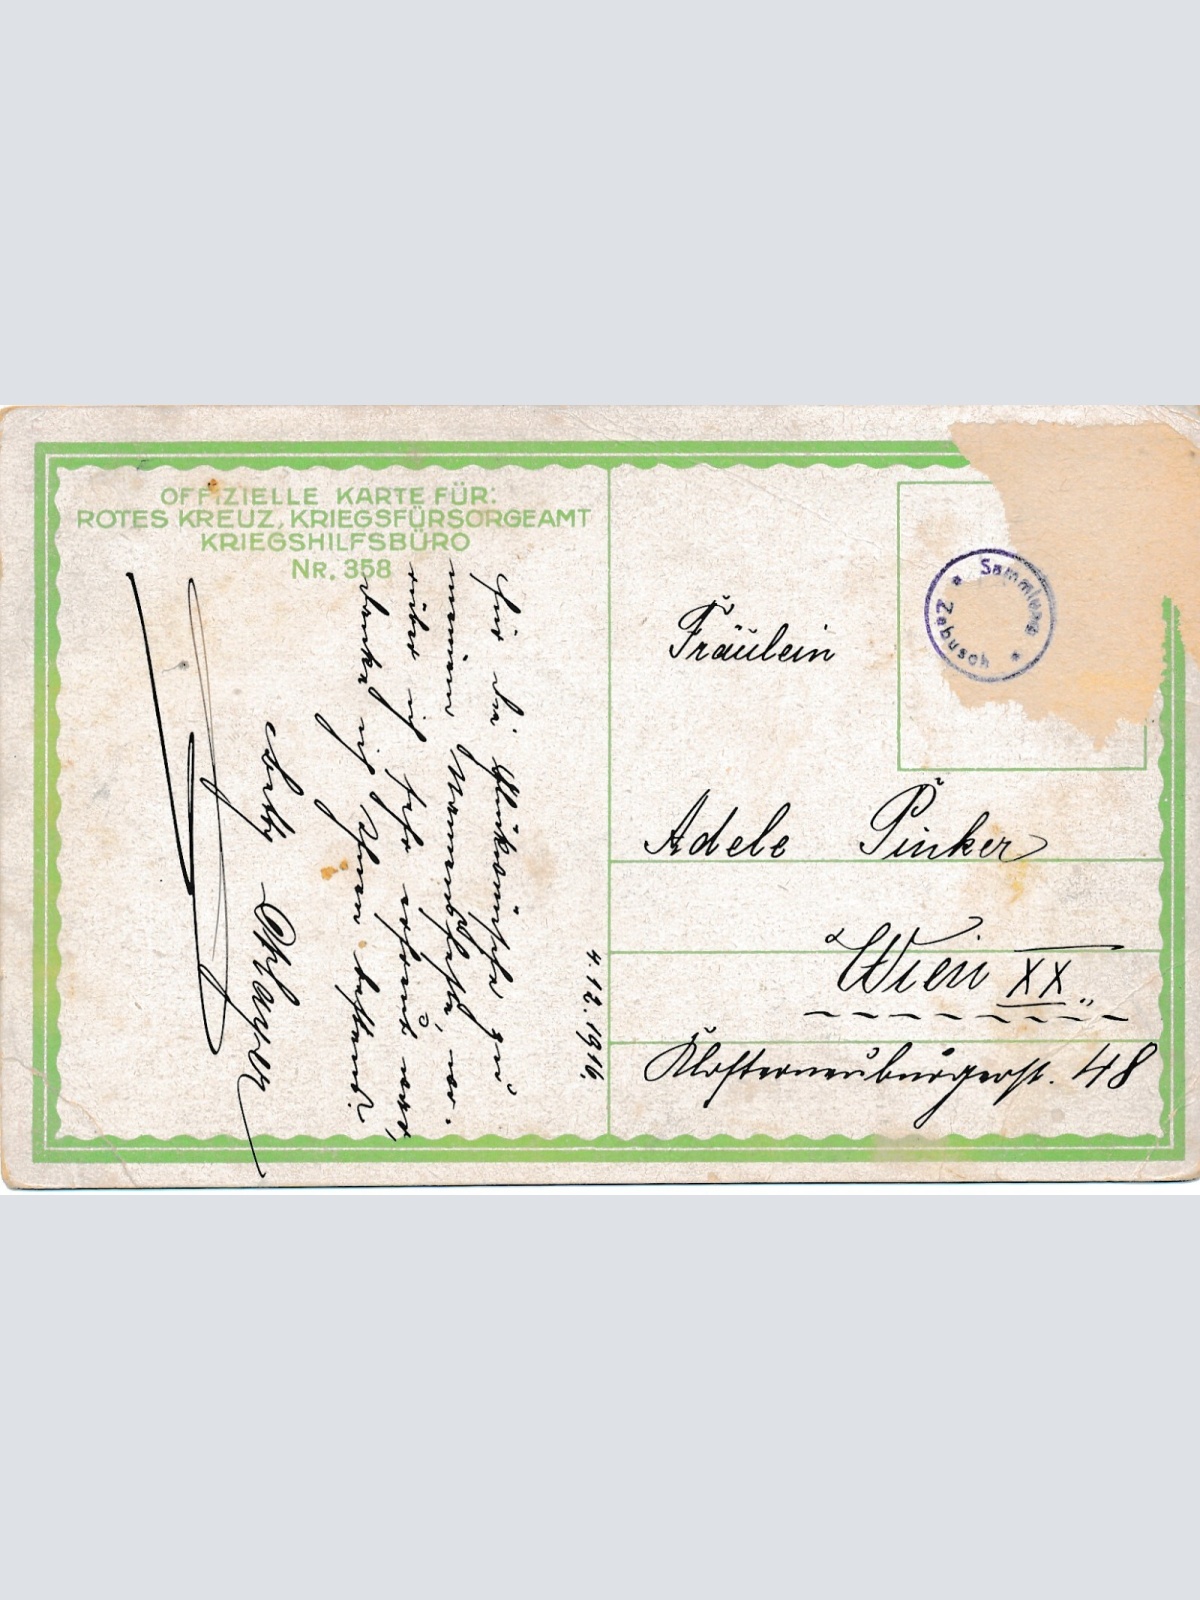 OFFIZIELLE KARTE FÜR:
ROTES KREUZ, KRIEGSFÜRSORGEAMT
KRIEGSHILFSBÜRO
NR. 358
4.12.1916.
Für die Glückwünsche zu
meinem Namensfeste,
ich sehr erfreut war,
danke ich Ihnen bestens.
Betty
Fräulein
Adele Pinker
Wien XX.
Klosterneuburgerst. 48
* Sammlung * Zabusch